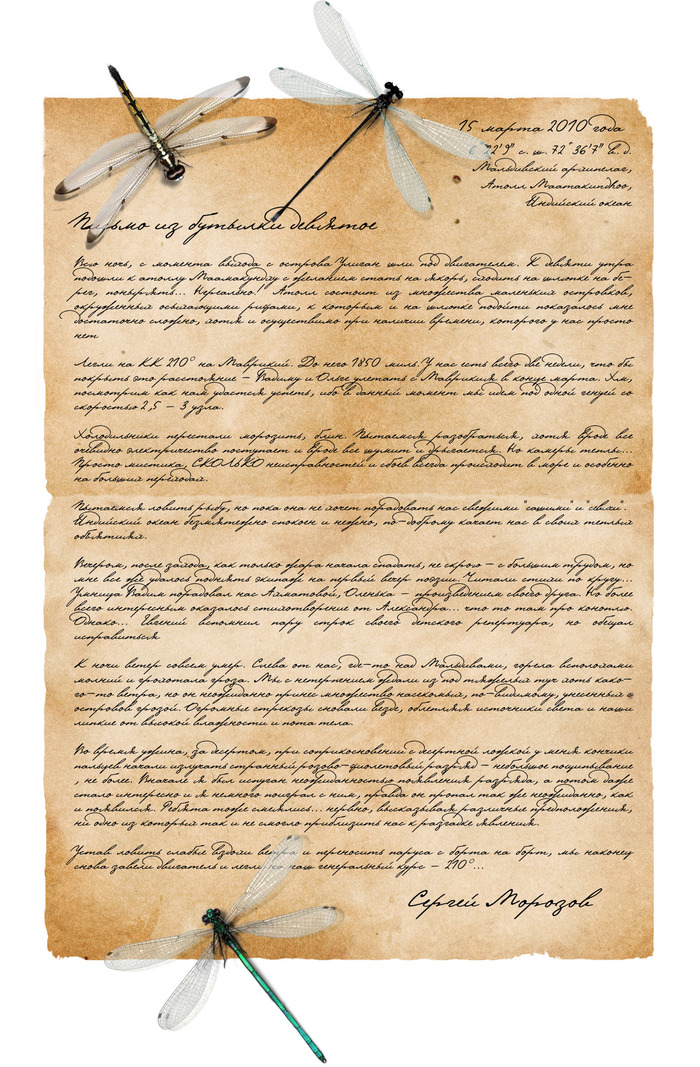 15 марта 2010 года
2'9" с. ш. 72° 36'7" в. д.
Мальдивский архипелаг,
Атолл Маатакундхоо,
Индийский океан
Письмо из бутылки девятое
Всю ночь, с момента выхода с острова Улиган шли под двигателем. К девяти утра
подошли к атоллу Маамакундху с желанием стать на якорь, сходить на шлюпке на бе-
рег, понырять... Нереально! Атолл состоит из множества маленьких островков,
окруженных осыхающими рифами, к которым и на шлюпке подойти показалось мне
достаточно сложно, хотя и осуществимо при наличии времени, которого у нас просто
нет
Легли на КК 210° на Маврикий. До него 1850 миль. У нас есть всего две недели, что бы
покрыть это расстояние – Вадиму и Ольге улетать с Маврикия в конце марта. Хм,
посмотрим как нам удастся успеть, ибо в данный момент мы идем под одной генуей со
скоростью 2,5 – 3 узла.
Холодильники перестали морозить, блин. Пытаемся разобраться, хотя вроде все
очевидно электричество поступает и вроде все шумит и фыркается. Но камеры теплы...
Просто мистика, СКОЛЬКО неисправностей и сбоев всегда происходит в море и особенно
на больших переходах.
Пытаемся ловить рыбу, но пока она не хочет порадовать нас свежими "сашими" и "севиче".
Индийский океан безмятежно спокоен и нежно, по-доброму качает нас в своих теплых
объятиях.
Вечером, после захода, как только жара начала спадать, не скрою – с большим трудом, но
мне все же удалось поднять экипаж на первый вечер поэзии. Читали стихи по кругу...
Умница Вадим порадовал нас Ахматовой, Оленька – произведением своего друга. Но более
всего интересным оказалось стихотворение от Александра... что то там про коноплю.
Однако... Евгений вспомнил пару строк своего детского репертуара, но обещал
исправиться
К ночи ветер совсем умер. Слева от нас, где-то над Мальдивами, горела всполохами
молний и грохотала гроза. Мы с нетерпением ждали из под тяжелых туч хоть како-
го-то ветра, но он неожиданно принес множество насекомых, по-видимому, унесенных с
островов грозой. Огромные стрекозы сновали везде, облепляя источники света и наши
липкие от высокой влажности и пота тела.
Во время ужина, за десертом, при соприкосновении с десертной ложкой у меня кончики
пальцев начали излучать странный розово-фиолетовый разряд – небольшое пощипывание
, не более. Вначале я был испуган неожиданностью появления разряда, а потом даже
стало интересно и я немного поиграл с ним, правда он пропал так же неожиданно, как
и появился. Ребята тоже смеялись... нервно, высказывая различные предположения,
ни одно из которых так и не смогло приблизить нас к разгадке явления.
Устав ловить слабые вздохи ветра и переносить паруса с борта на борт, мы наконец
снова завели двигатель и легли на наш генеральный курс – 210°...
Сергей Морозов